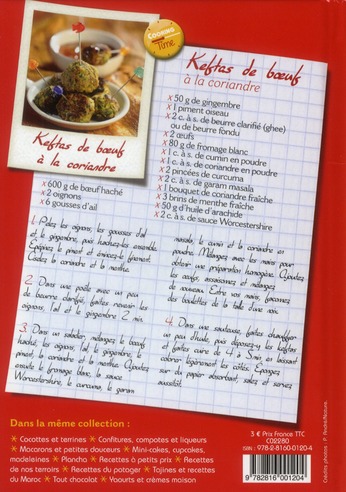 COOKING
Time
Keftas de bœuf
à la coriandre
Keftas de bœuf
à la coriandre
x 600 g de bœuf haché
x 2 oignons
x 6 gousses d'ail
x 50 g de gingembre
x 1 piment oiseau
x 2 c. à s. de beurre clarifié (ghee)
ou de beurre fondu
x 2 œufs
x 80 g de fromage blanc
x 1 c. à s. de cumin en poudre
x 1 c. à s. de coriandre en poudre
x 2 pincées de curcuma
x 2 c. à s. de garam masala
x 1 bouquet de coriandre fraîche
x 3 brins de menthe fraîche
x 50 g d'huile d'arachide
x 2 c. à s. de sauce Worcestershire
1. Pelez les oignons, les gousses d'ail
et le gingembre, puis hachez-les ensemble.
Épépinez le piment et émincez-le finement.
Ciselez la coriandre et la menthe.
2. Dans une poêle avec un peu
de beurre clarifié, faites revenir les
oignons, l'ail et le gingembre 2 min.
3. Dans un saladier, mélangez le bœuf
haché, les oignons, l'ail, le gingembre, le
piment, la coriandre et la menthe. Ajoutez
ensuite le fromage blanc, la sauce
Worcestershire, le curcuma, le garam
masala, le cumin et la coriandre en
poudre. Mélangez avec les mains pour
obtenir une préparation homogène. Ajoutez
les œufs, assaisonnez et mélangez
de nouveau. Entre vos mains, façonnez
des boulettes de la taille d'une noix.
4. Dans une sauteuse, faites chauffer
un peu d'huile, puis déposez-y les keftas
et faites cuire de 4 à 5 min, en laissant
colorer légèrement les côtés. Épongez
sur du papier absorbant, salez et servez
aussitôt.
Dans la même collection :
Cocottes et terrines ★ Confitures, compotes et liqueurs
★ Macarons et petites douceurs ★ Mini-cakes, cupcakes,
madeleines ★ Plancha ★ Recettes à petits prix ★ Recettes
de nos terroirs ★ Recettes du potager ★ Tajines et recettes
du Maroc ★ Tout chocolat ★ Yaourts et crèmes maison
3 € Prix France TTC
C02280
ISBN : 978-2-8160-0120-4
9 782816 001204
Crédits photos : P. André/Nature.